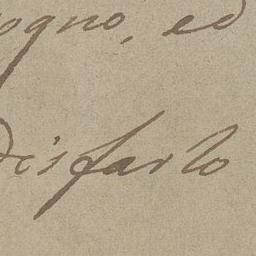 ogno, ed
disfarlo